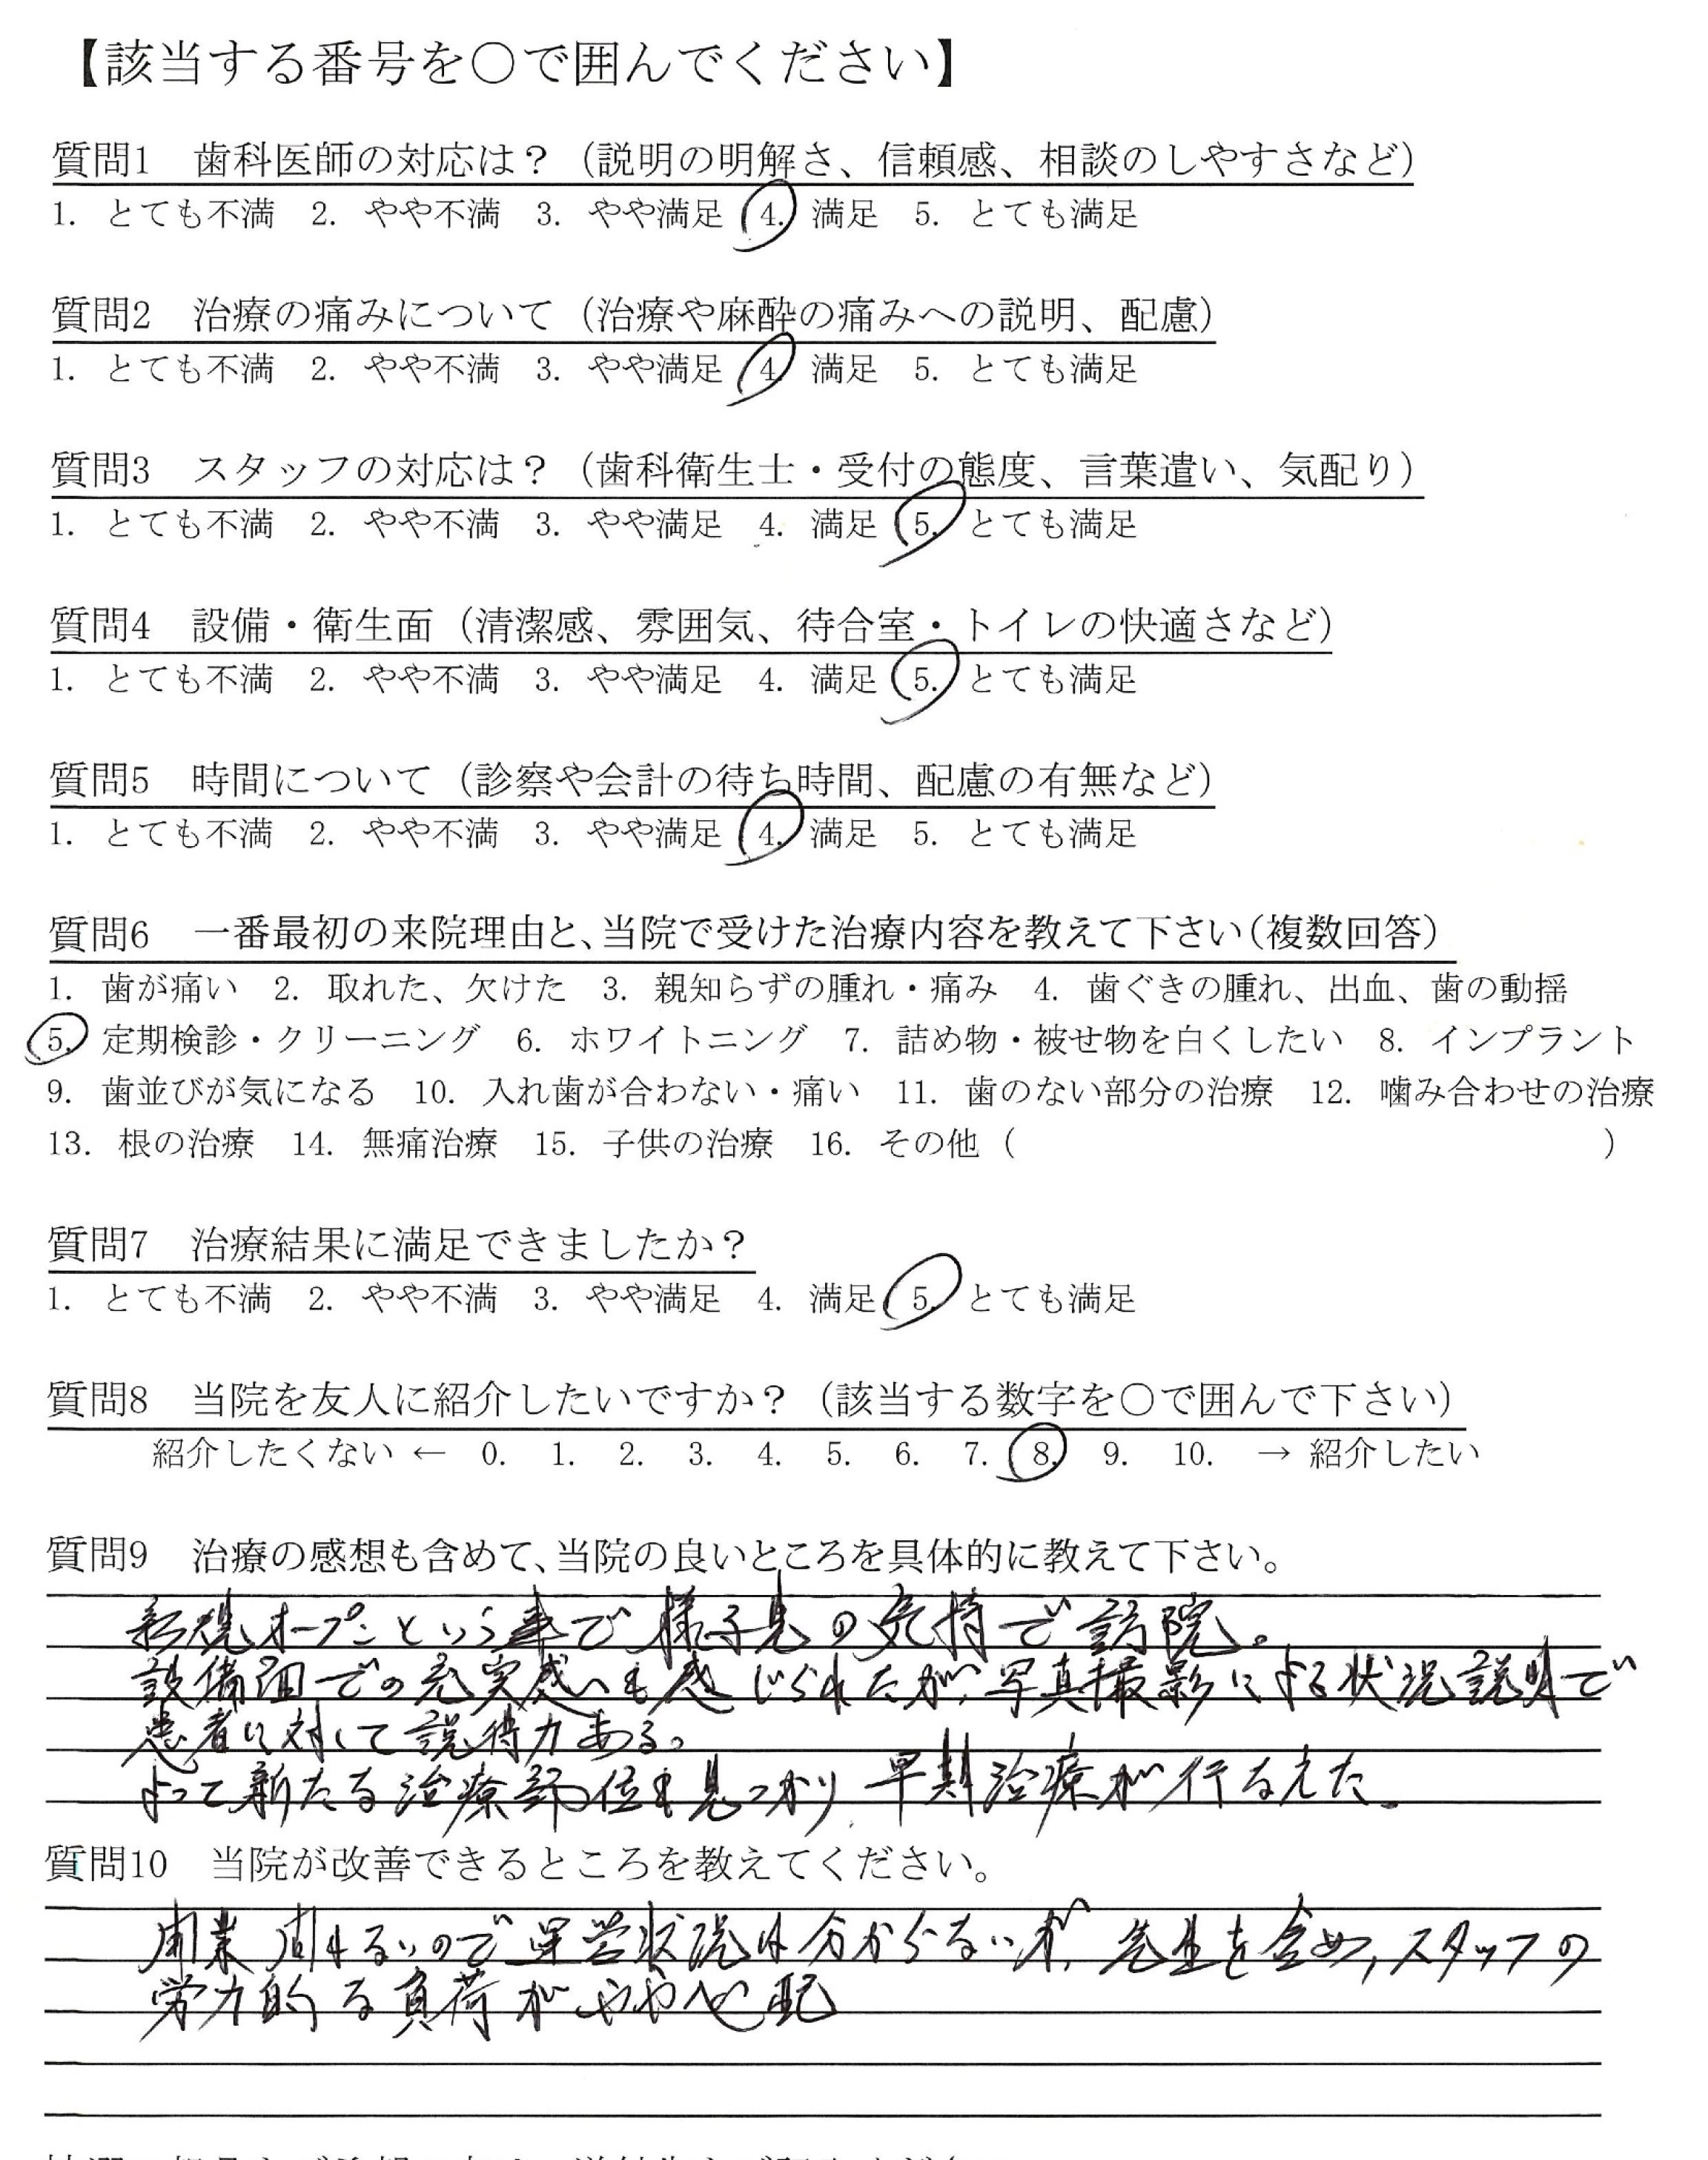 【該当する番号を○で囲んでください】
質問1　歯科医師の対応は？（説明の明解さ、信頼感、相談のしやすさなど）
1. とても不満　2. やや不満　3. やや満足　4. 満足　5. とても満足
質問2　治療の痛みについて（治療や麻酔の痛みへの説明、配慮）
1. とても不満　2. やや不満　3. やや満足　4. 満足　5. とても満足
質問3　スタッフの対応は？（歯科衛生士・受付の態度、言葉遣い、気配り）
1. とても不満　2. やや不満　3. やや満足　4. 満足　5. とても満足
質問4　設備・衛生面（清潔感、雰囲気、待合室・トイレの快適さなど）
1. とても不満　2. やや不満　3. やや満足　4. 満足　5. とても満足
質問5　時間について（診察や会計の待ち時間、配慮の有無など）
1. とても不満　2. やや不満　3. やや満足　4. 満足　5. とても満足
質問6　一番最初の来院理由と、当院で受けた治療内容を教えて下さい（複数回答）
1. 歯が痛い　2. 取れた、欠けた　3. 親知らずの腫れ・痛み　4. 歯ぐきの腫れ、出血、歯の動揺
5. 定期検診・クリーニング　6. ホワイトニング　7. 詰め物・被せ物を白くしたい　8. インプラント
9. 歯並びが気になる　10. 入れ歯が合わない・痛い　11. 歯のない部分の治療　12. 噛み合わせの治療
13. 根の治療　14. 無痛治療　15. 子供の治療　16. その他（　　　）
質問7　治療結果に満足できましたか？
1. とても不満　2. やや不満　3. やや満足　4. 満足　5. とても満足
質問8　当院を友人に紹介したいですか？（該当する数字を○で囲んで下さい）
紹介したくない ← 0. 1. 2. 3. 4. 5. 6. 7. 8. 9. 10. → 紹介したい
質問9　治療の感想も含めて、当院の良いところを具体的に教えて下さい。
新規オープンという事で様子見の気持で訪院。
設備面での充実感も感じられたが、写真撮影による状況説明で
患者に対して説得力ある。
よって新たな治療部位も見つかり、早期治療が行なえた。
質問10　当院が改善できるところを教えてください。
開業間もないので運営状況は分からないが、先生を含め、スタッフの
労力的な負荷がやや心配